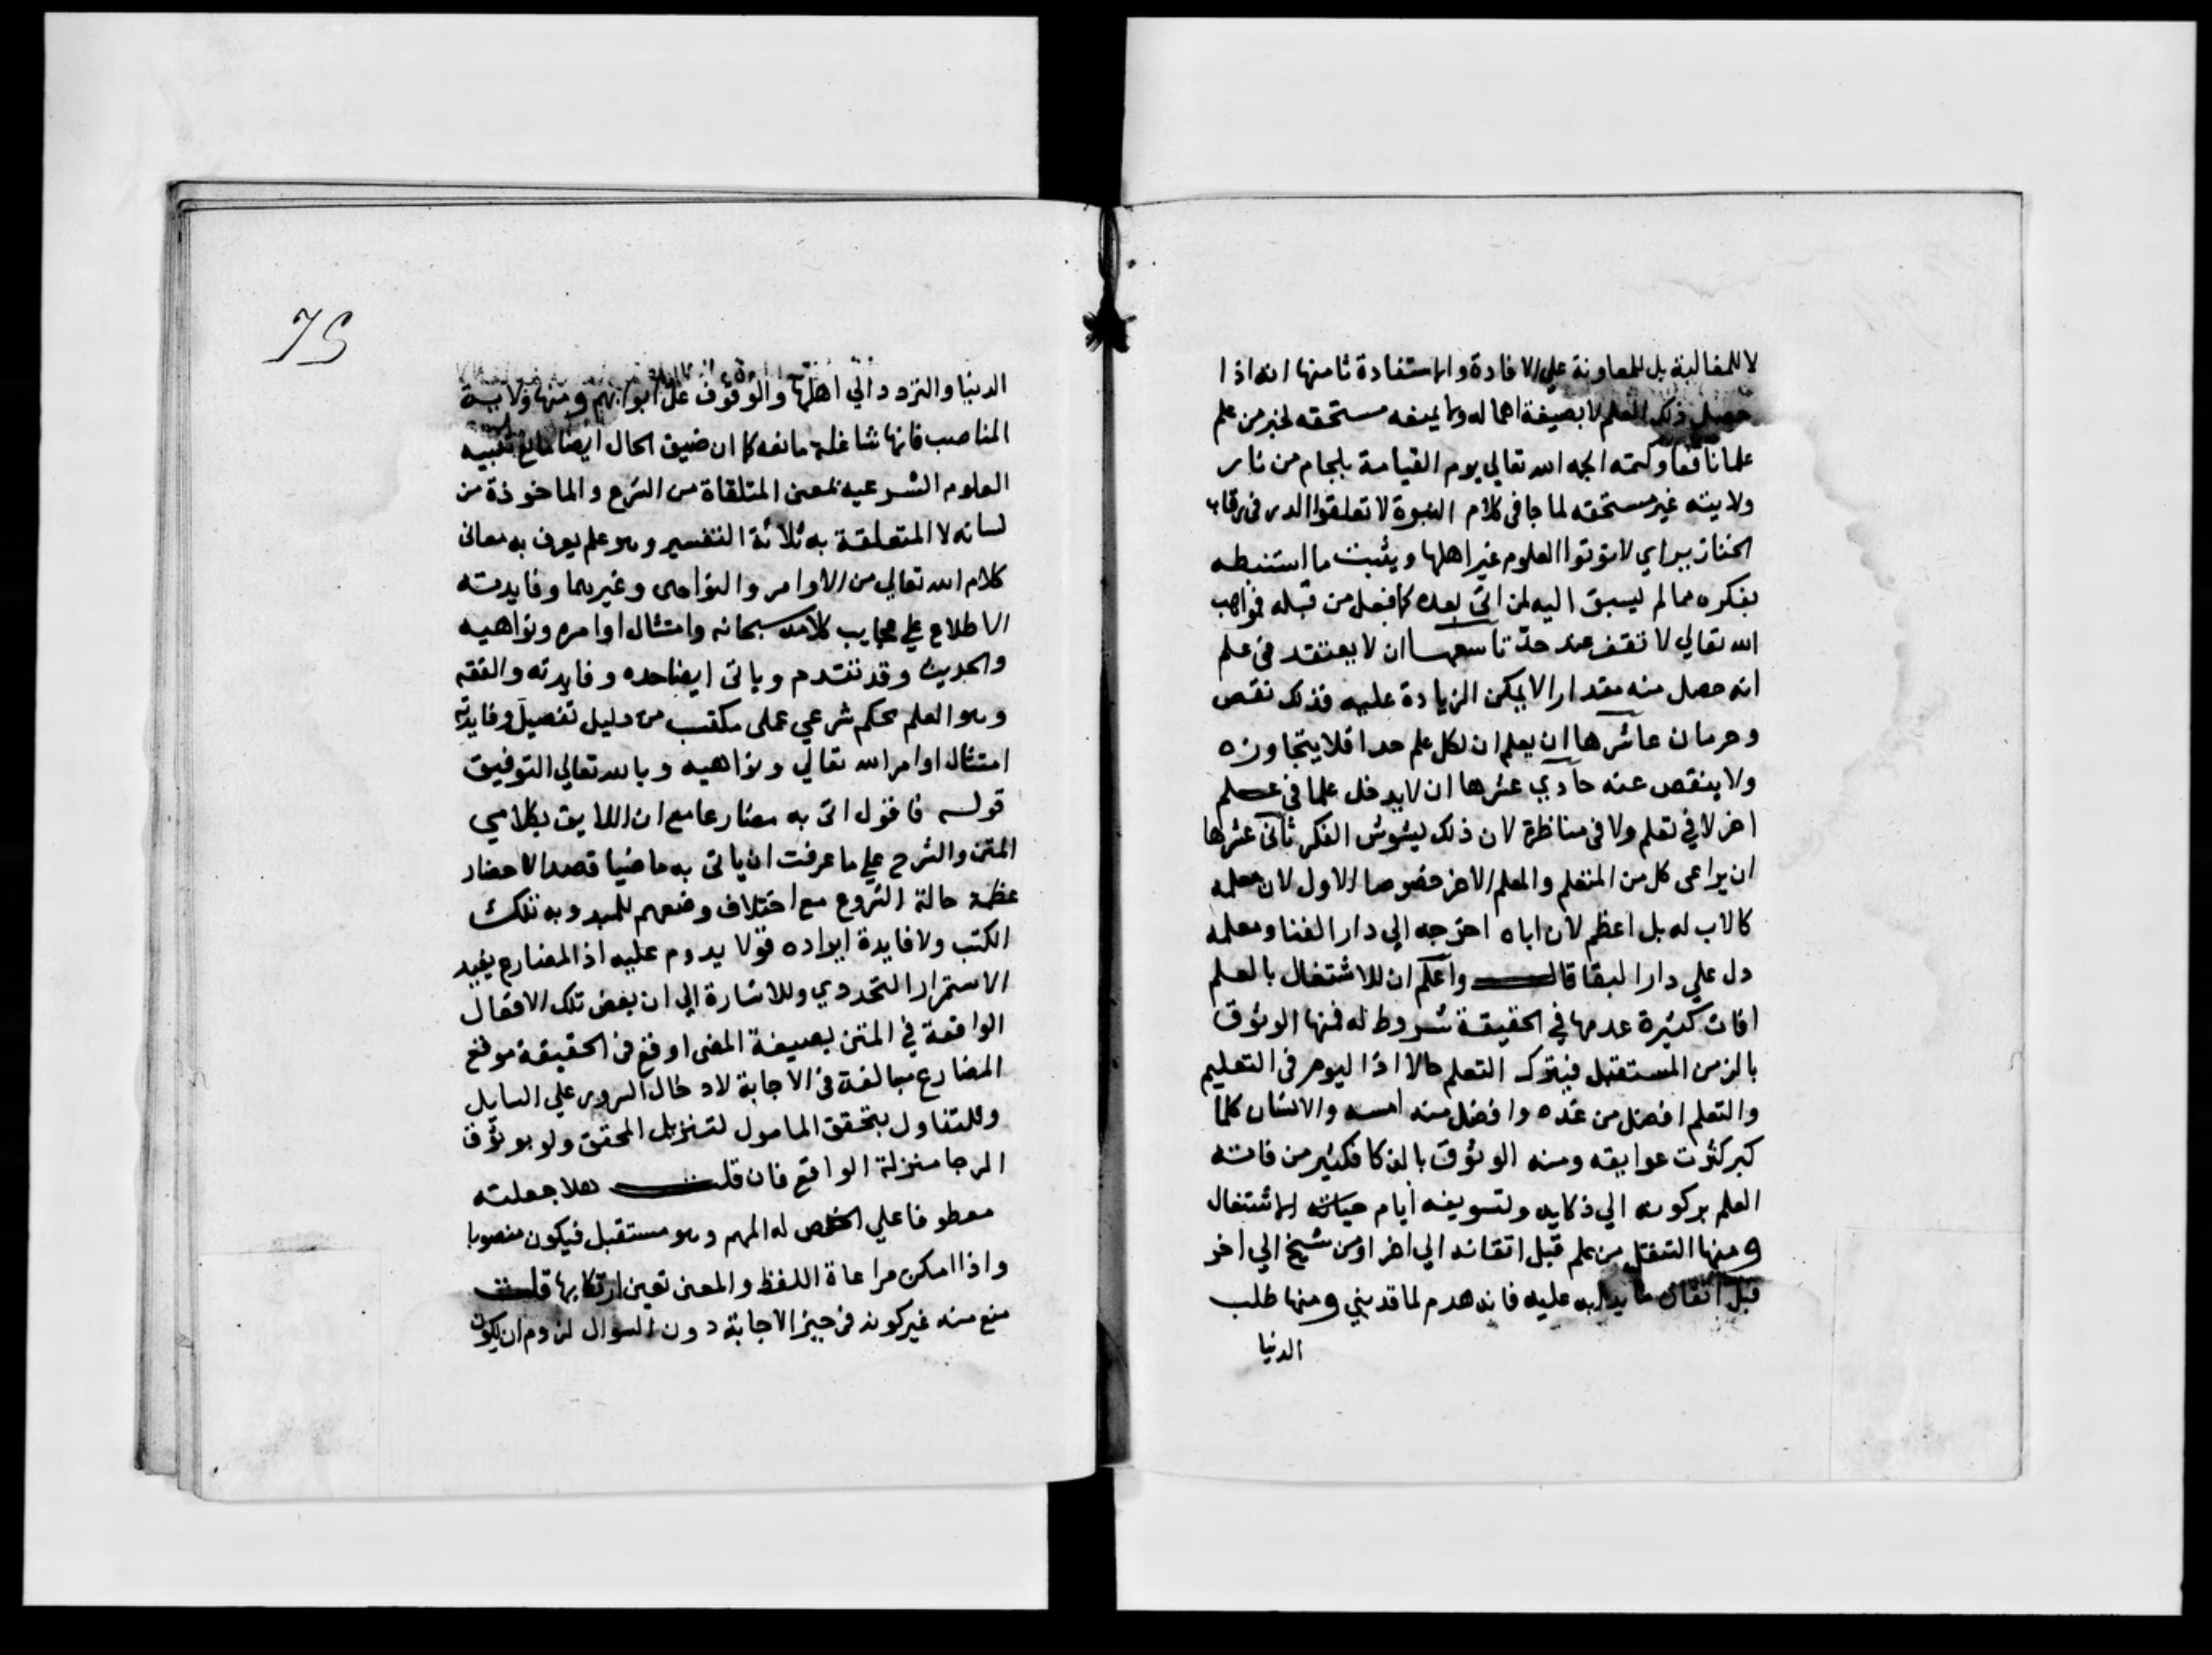 لا للمغالبة بل للمعاونة علي الافادة والاستفادة ثامنها انه اذا
حصل ذلك العلم لا يضيعة اهماله ولا يمنعه مستحقه لخبر من علم
علما نافعا وكتمه الجمه الله تعالي يوم القيامة بلجام من نار
ولا يته غير مستحقه لما جا في كلام النبوة لا تعلقوا الدر في رقاب
الخنازير اي لا توتوا العلوم غير اهلها ويثبت ما استنبطه
بفكره مما لم يسبق اليه لمن اتي بعده كما فعل من قبله فمواهب
الله تعالي لا تقف عند حد تاسعها ان لا يعتقد في علم
انه حصل منه مقدارا لا يمكن الزيادة عليه فذلك نقص
وحرمان عاشرها ان يعلم ان لكل علم حدا فلا يتجاوزه
ولا ينقص عنه حادي عشرها ان لا يدخل علما في علم
اخر لا في تعلم ولا في مناظرة لان ذلك يشوش الفكر ثاني عشرها
ان يراعي كل من المتعلم والمعلم الاخر خصوصا الاول لان معلمه
كالاب له بل اعظم لان اباه اخرجه الي دار الفنا ومعلمه
دل علي دار البقا قال واعلم ان للاشتغال بالعلم
افات كثيرة عدمها في الحقيقة شروط له فمنها الوثوق
بالزمن المستقبل فيترك التعلم حالا اذ اليوم في التعليم
والتعلم افضل من غده وافضل منه امسه والانسان كلما
كبر كثرت عوايقه ومنه الوثوق بالذكا فكثير من فاته
العلم بركونه الي ذكايه وتسويفه ايام حياته الاشتغال
ومنها التنقل من علم قبل اتقانه الي اخر او من شيخ الي اخر
قبل اتقان ما بدا به عليه فانه هدم لما قد بني ومنها طلب
الدنيا
75
الدنيا والتردد الي اهلها والوقوف على ابوابهم ومنها ولاية
المناصب فانها شاغلة مانعه كما ان ضيق الحال ايضا مانع تنبيه
العلوم الشرعيه بمعنى المتلقاة من الشرع والماخوذة من
لسانه لا المتعلقة به ثلاثة التفسير وهو علم يعرف به معاني
كلام الله تعالي من الاوامر والنواهى وغيرهما وفايدته
الاطلاع علي عجايب كلامه سبحانه وامتثال اوامره ونواهيه
والحديث وقد تقدم وياتى ايضا حده وفايدته والفقه
وهو العلم بحكم شرعي عملى مكتسب من دليل تفصيل وفايدته
امتثال اوامر الله تعالي ونواهيه وبالله تعالي التوفيق
قوله فاقول اتى به مضارعا مع ان اللايق بكلامي
المتن والشرح علي ما عرفت ان ياتى به ماضيا قصدا لاحضار
عظمة حالة الشروع مع اختلاف وضعهم للمبدوبه تلك
الكتب ولافايدة ايراده قولا يدوم عليه اذ المضارع يفيد
الاستمرار التجددي وللاشارة الي ان بعض تلك الافعال
الواقعة في المتن بصيغة المضى اوقع فى الحقيقة موقع
المضارع مبالغة فى الاجابة لادخال السرور علي السايل
وللتفاول بتحقق المامول لتنزيل المحقق ولو بوثوق
الرجا منزلة الواقع فان قلت هلا جعلته
معطوفا علي الخص له المهم وهو مستقبل فيكون منصوبا
واذا امكن مراعاة اللفظ والمعنى تعين ارتكابها قلت
منع منه غير كونه فى حيز الاجابة دون السوال لزوم ان يكون